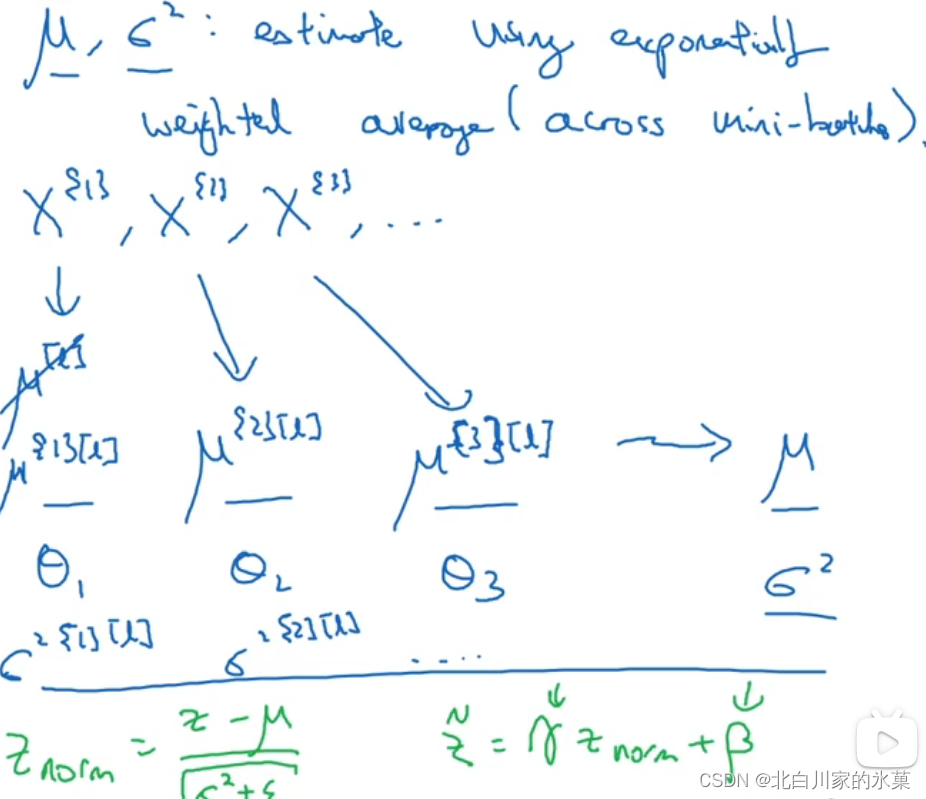 μ, σ²: estimate using exponentially
weighted average (across mini-batche).
X^{1}, X^{2}, X^{3}, ...
μ^[l]
μ^{1}[l] μ^{2}[l] μ^{3}[l] → μ
θ₁ θ₂ θ₃ σ²
σ²^{1}[l] σ²^{2}[l] ....
z_norm = (z - μ) / √(σ² + ε) z̃ = γ z_norm + β
CSDN @北白川家的氷菓